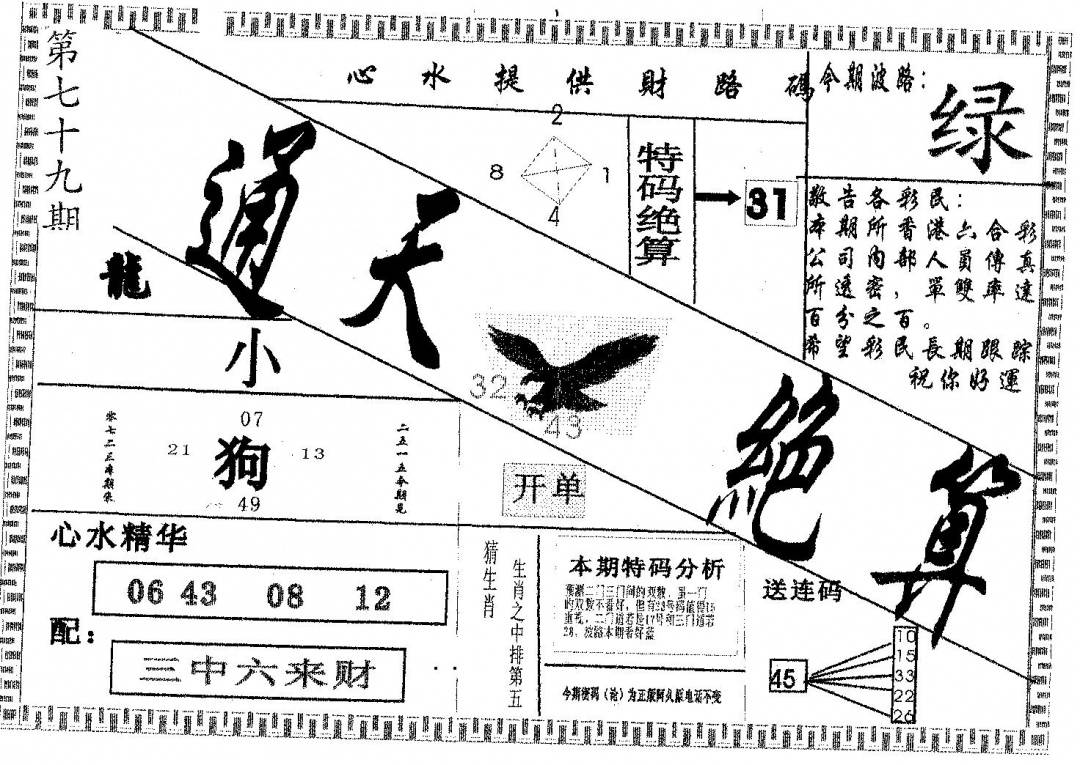 第七十九期
心水提供財路碼
今期波路：
绿
通天絕算
龍
2
8
1
4
特码绝算
31
敬告各彩民：
本期所香港六合彩
公司内部人員傳真
所透密，單雙率達
百分之百。
希望彩民長期跟踪
祝你好運
小
32
43
开单
07
21
狗
13
49
二五一五今期見
心水精华
06 43 08 12
配：
三中六来财
猜生肖
生肖之中排第五
本期特码分析
送连码
45
10
15
33
22
26